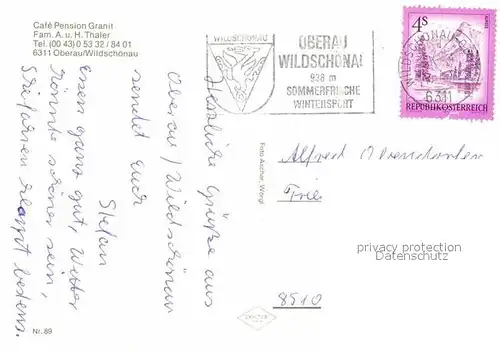 Café Pension Granit
Fam. A. u. H. Thaler
Tel. (00 43) 0 53 32 / 84 01
6311 Oberau/Wildschönau
WILDSCHÖNAU
OBERAU
WILDSCHÖNAU
938 m
SOMMERFRISCHE
WINTERSPORT
WILDSCHÖNAU
6311
4S
REPUBLIK ÖSTERREICH
Herzliche Grüße aus
Oberau / Wildschönau
sendet Euch
Stefan
Essen ganz gut, Wetter
könnte schöner sein,
Skifahren klappt bestens.
Foto Ascher, Wörgl
Alfred
8510
privacy protection
watermark
Nr. 89